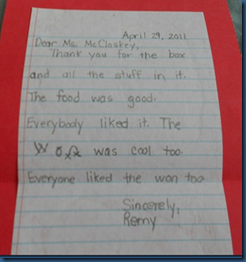 April 29, 2011
Dear Ms. McCloskey,
Thank you for the box
and all the stuff in it.
The food was good.
Everybody liked it. The
was cool too.
Everyone liked the won too
Sincerely,
Remy